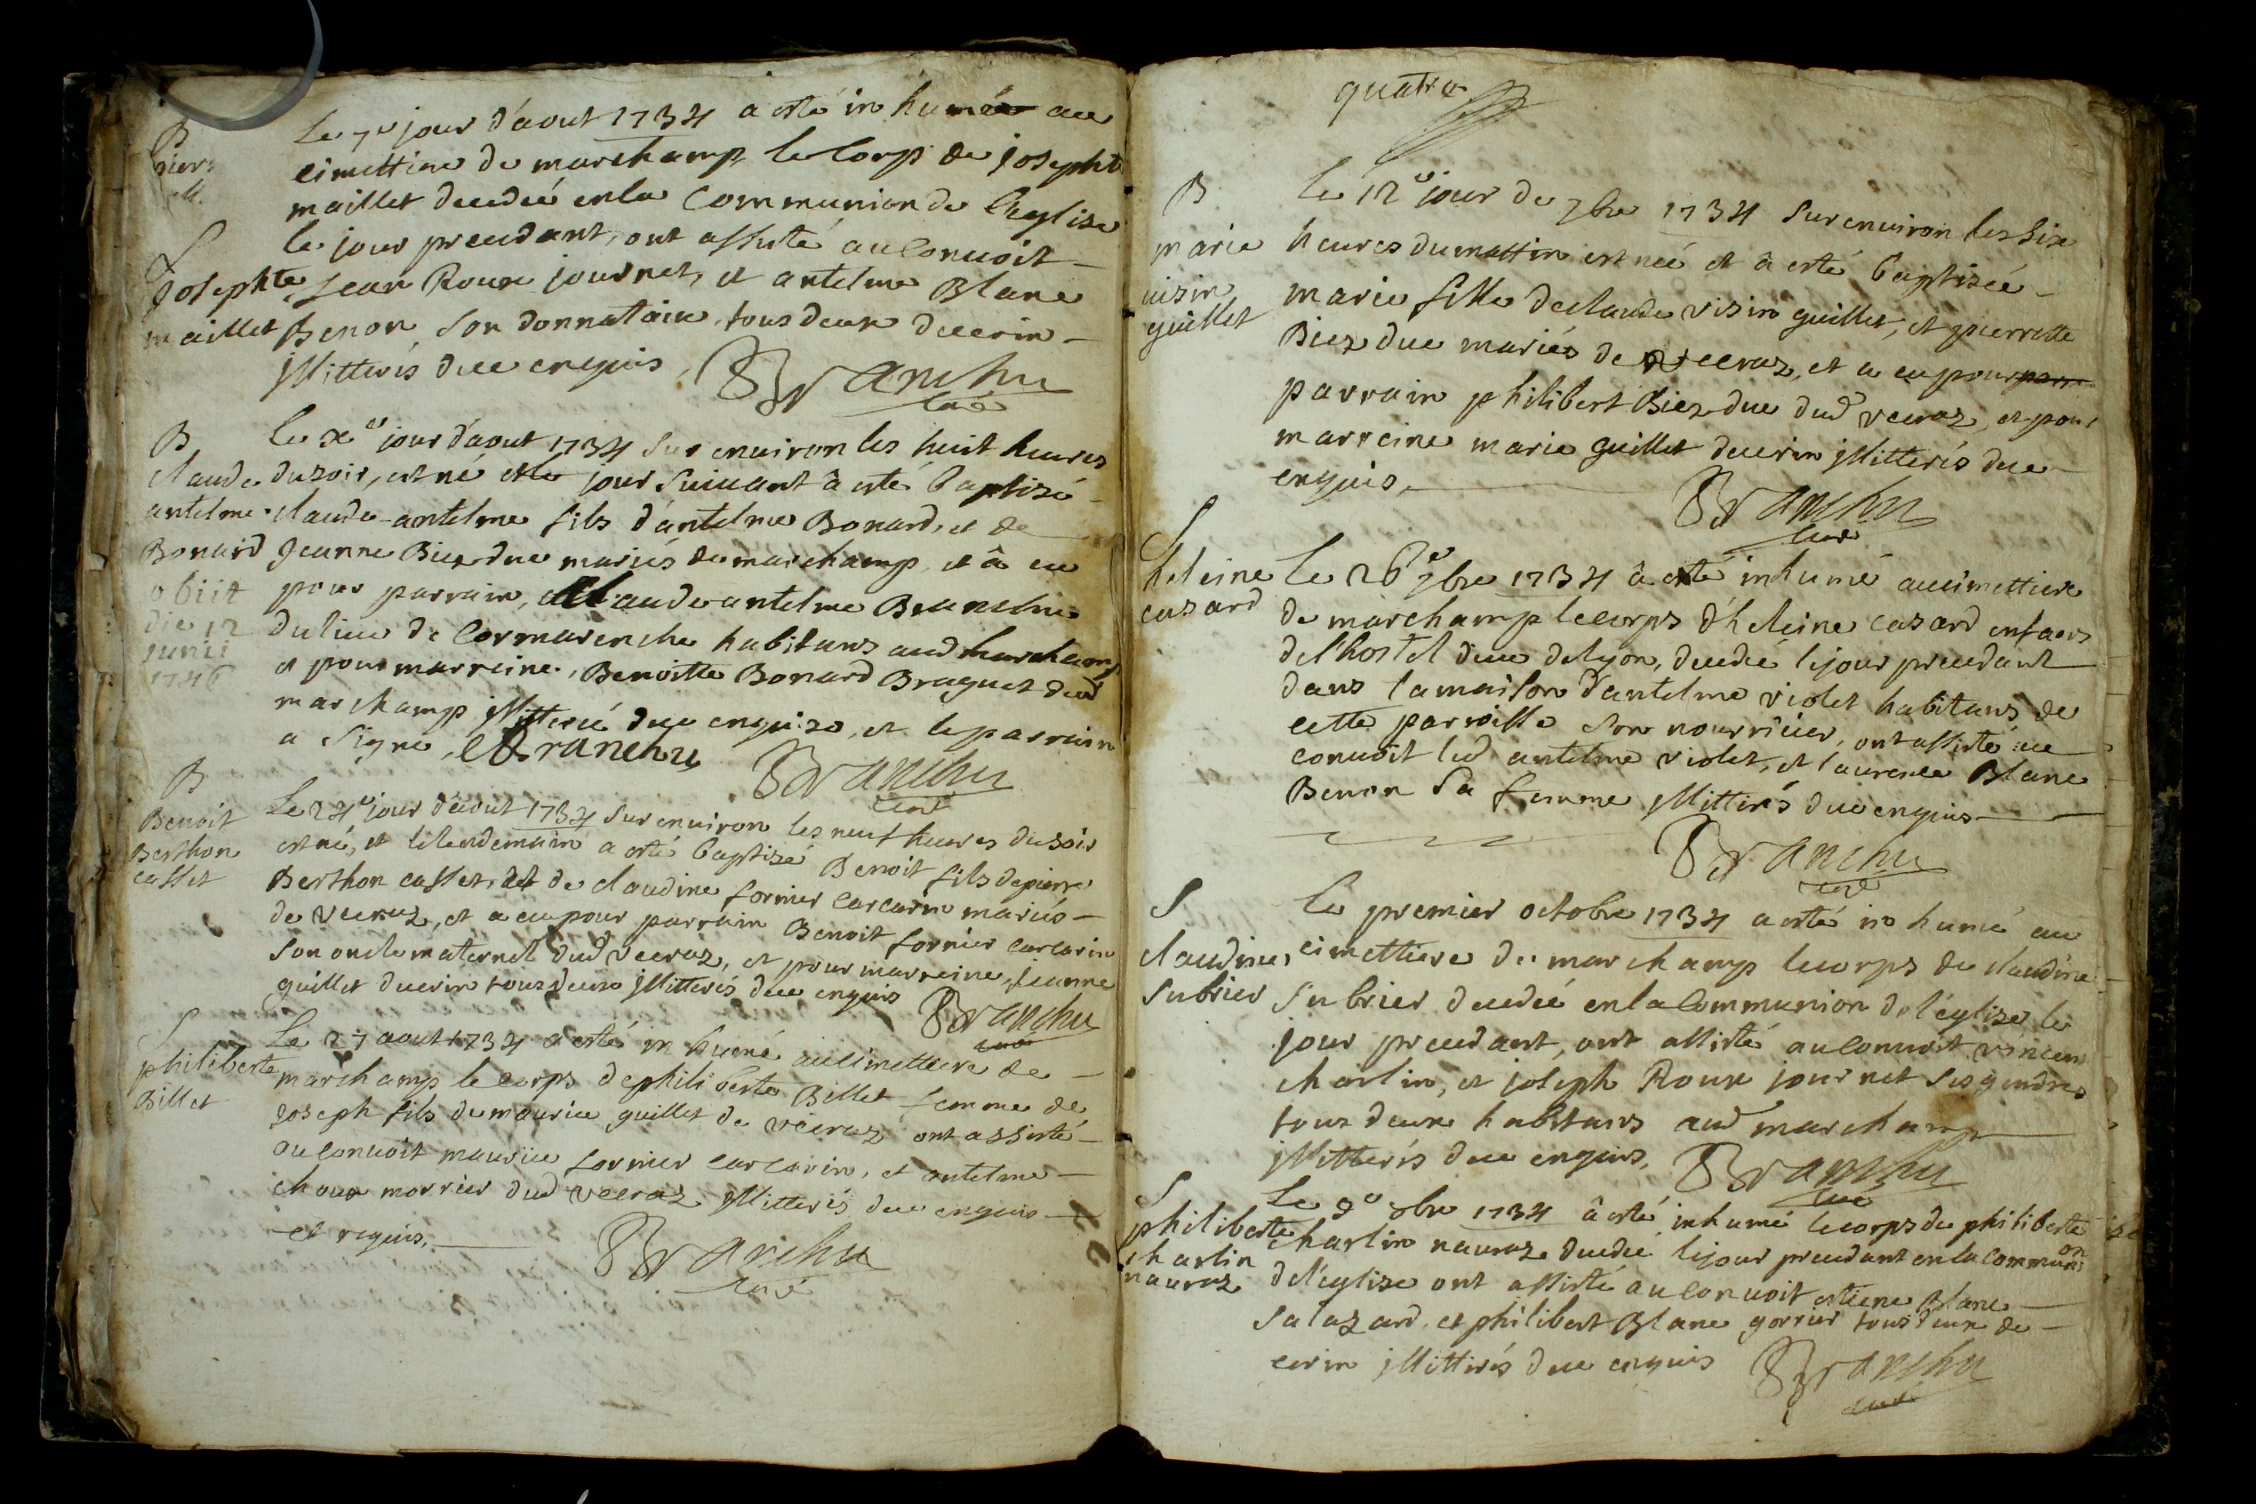 B
Le 7e jour d'aout 1734 a esté inhumée au
cimettiere de marchamp le Corps de Josephte
maillet decedée en la Communion de l'eglise
le jour precedant, ont assisté au Convoit
S
Josephte
maillet
Jean Roux journet, et antelme Blanc
Benon son donnataire, tous deux de cerin
illitterés de ce enquis
Branchu
curé
B
claude
antelme
Bonard
obiit
die 12
junii
1746
Le xe jour d'aout 1734 sur environ les huit heures
du soir, est né et le jour suivant â esté baptizé
claude-antelme fils d'antelme Bonard, et de
Jeanne Biez due mariés de marchamp, et â eu
pour parrain, claude antelme Branchu
du lieu de Cormarenche habitans aud marchamp
et pour marreine, Benoitte Bonard Braguet dud
marchamp illitteré de ce enquise, et le parrain
a signé, C Branchu
Branchu
curé
B
Benoit
Berthon
casset
Le 24e jour d'aout 1734 sur environ les neuf heures du soir
est né, et le lendemain a esté baptizé Benoit fils de pierre
Berthon casset, et de claudine fornier carcarin mariés
de veeraz, et a eu pour parrain Benoit fornier carcarin
son oncle maternel dud veeraz, et pour marreine, Jeanne
guillet de cerin tous deux illitterés de ce enquis
Branchu
curé
S
philiberte
Billet
Le 27 aout 1734 a esté inhumé au cimettiere de
marchamp le corps de philiberte Billet femme de
Joseph fils de maurice guillet de veeraz ont assisté
au Convoit maurice fornier carcarin, et antelme
choux morrier dud veeraz illitterés de ce enquis
et requis,
Branchu
curé
quatre
B
marie
visin
guillet
Le 12e jour de 7bre 1734 sur environ les six
heures du mattin est née et â esté baptizée
marie fille de claude visin guillet, et pierrette
Biez due mariés de veeraz, et a eu pour
parrain philibert Biez due dud veeraz, et pour
marreine marie guillet de cerin illitterés de ce
enquis,
Branchu
curé
S
heleine
casard
Le 26e 7bre 1734 â esté inhumé au cimettiere
de marchamp le corps d'heleine casard enfans
de l'hostel dieu de lyon, decedée le jour precedant
dans la maison d'antelme violet habitans de
cette parroisse son nourricier, ont assisté au
convoit led antelme violet, et laurence Blanc
Benon sa femme illitterés de ce enquis
Branchu
curé
S
claudine
subrier
Le premier octobre 1734 a esté inhumé au
cimettiere de marchamp le corps de claudine
subrier decedée en la Communion de l'église le
jour precedant, ont assisté au Convoit vincent
charlin, et joseph Roux journet ses gendres
tous deux habitans aud marchamp
illitterés de ce enquis,
Branchu
curé
S
philiberte
charlin
nauraz
Le 9e 8bre 1734 â esté inhumé le corps de philiberte
charlin nauraz decedée le jour precedant en la communion
de l'eglise ont assisté au Convoit estiene Blanc
salazard, et philibert Blanc gorrier tous deux de
cerin illitterés de ce enquis
Branchu
curé